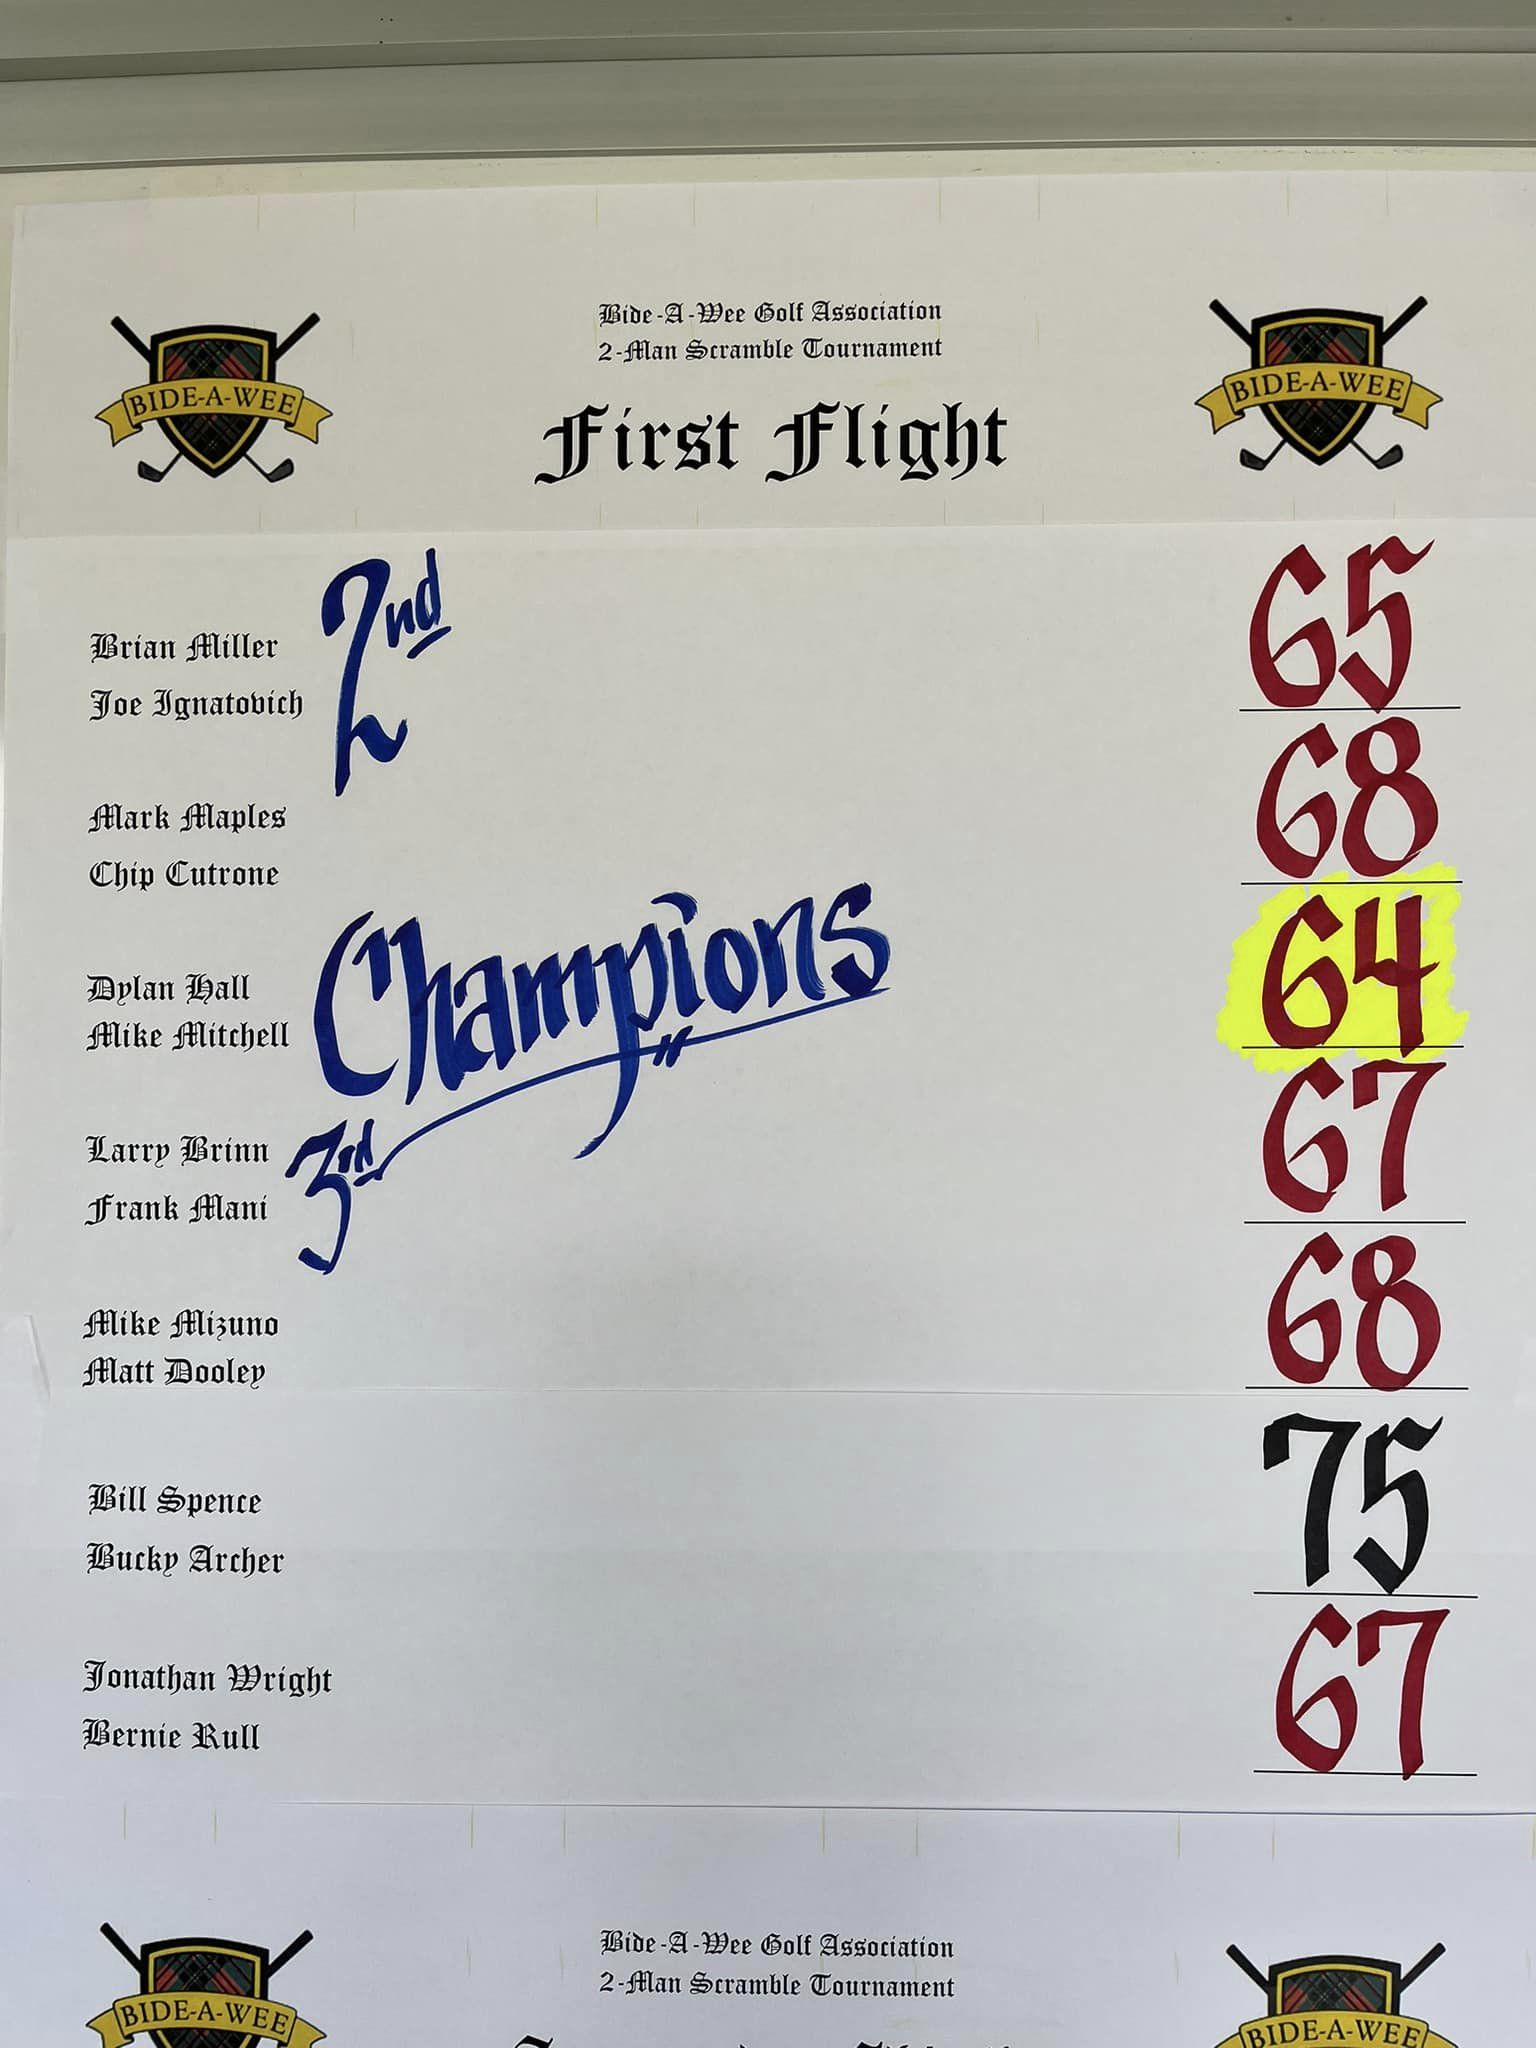 Bide-A-Wee Golf Association
2-Man Scramble Tournament
BIDE-A-WEE
First Flight
BIDE-A-WEE
Brian Miller
Joe Ignatovich
2nd
65
Mark Maples
Chip Cutrone
68
Dylan Hall
Mike Mitchell
Champions
64
Larry Brinn
Frank Mani
3rd
67
Mike Mizuno
Matt Dooley
68
Bill Spence
Bucky Archer
75
Jonathan Wright
Bernie Rull
67
Bide-A-Wee Golf Association
2-Man Scramble Tournament
BIDE-A-WEE
BIDE-A-WEE